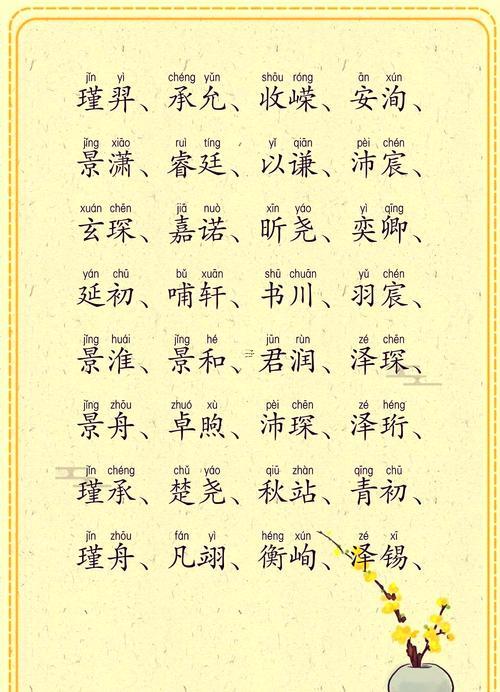 jǐn yì chéng yǔn shōu róng ān xún
瑾羿、承允、收嵘、安洵、
jǐng xiāo ruì tíng yǐ qiān pèi chén
景潇、睿廷、以谦、沛宸、
xuán chēn jiā nuò xīn yáo yì qīng
玄琛、嘉诺、昕尧、奕卿、
yán chū bǔ xuān shū chuān yǔ chén
延初、哺轩、书川、羽宸、
jǐng huái jǐng hé jūn rùn zé chēn
景淮、景和、君润、泽琛、
jǐng zhōu zhuó xù pèi chēn zé héng
景舟、卓煦、沛琛、泽珩、
jǐn chéng chǔ yáo qiū zhàn qīng chū
瑾承、楚尧、秋站、青初、
jǐn zhōu fán yì héng xún zé xī
瑾舟、凡翊、衡峋、泽锡、